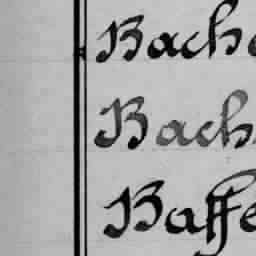 Bach
Bach
Baffe